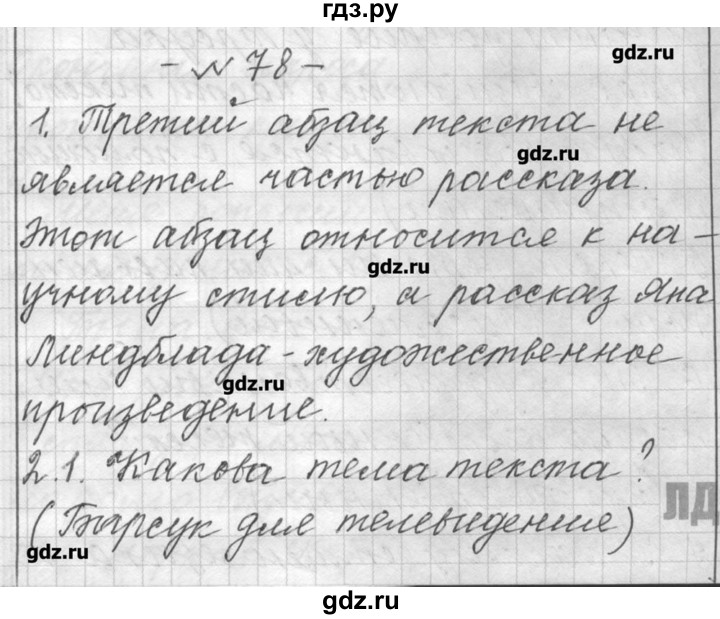 гдз.ру
- № 78 -
gdz.ru
1. Третий абзац текста не
gdz.ru
является частью рассказа.
Этот абзац относится к на-
gdz.ru
учному стилю, а рассказ Яна
Линдблада - художественное
gdz.ru
произведение.
2.1. Какова тема текста?
ЛД
(Барсук для телевидения)
gdz.ru
gdz.ru